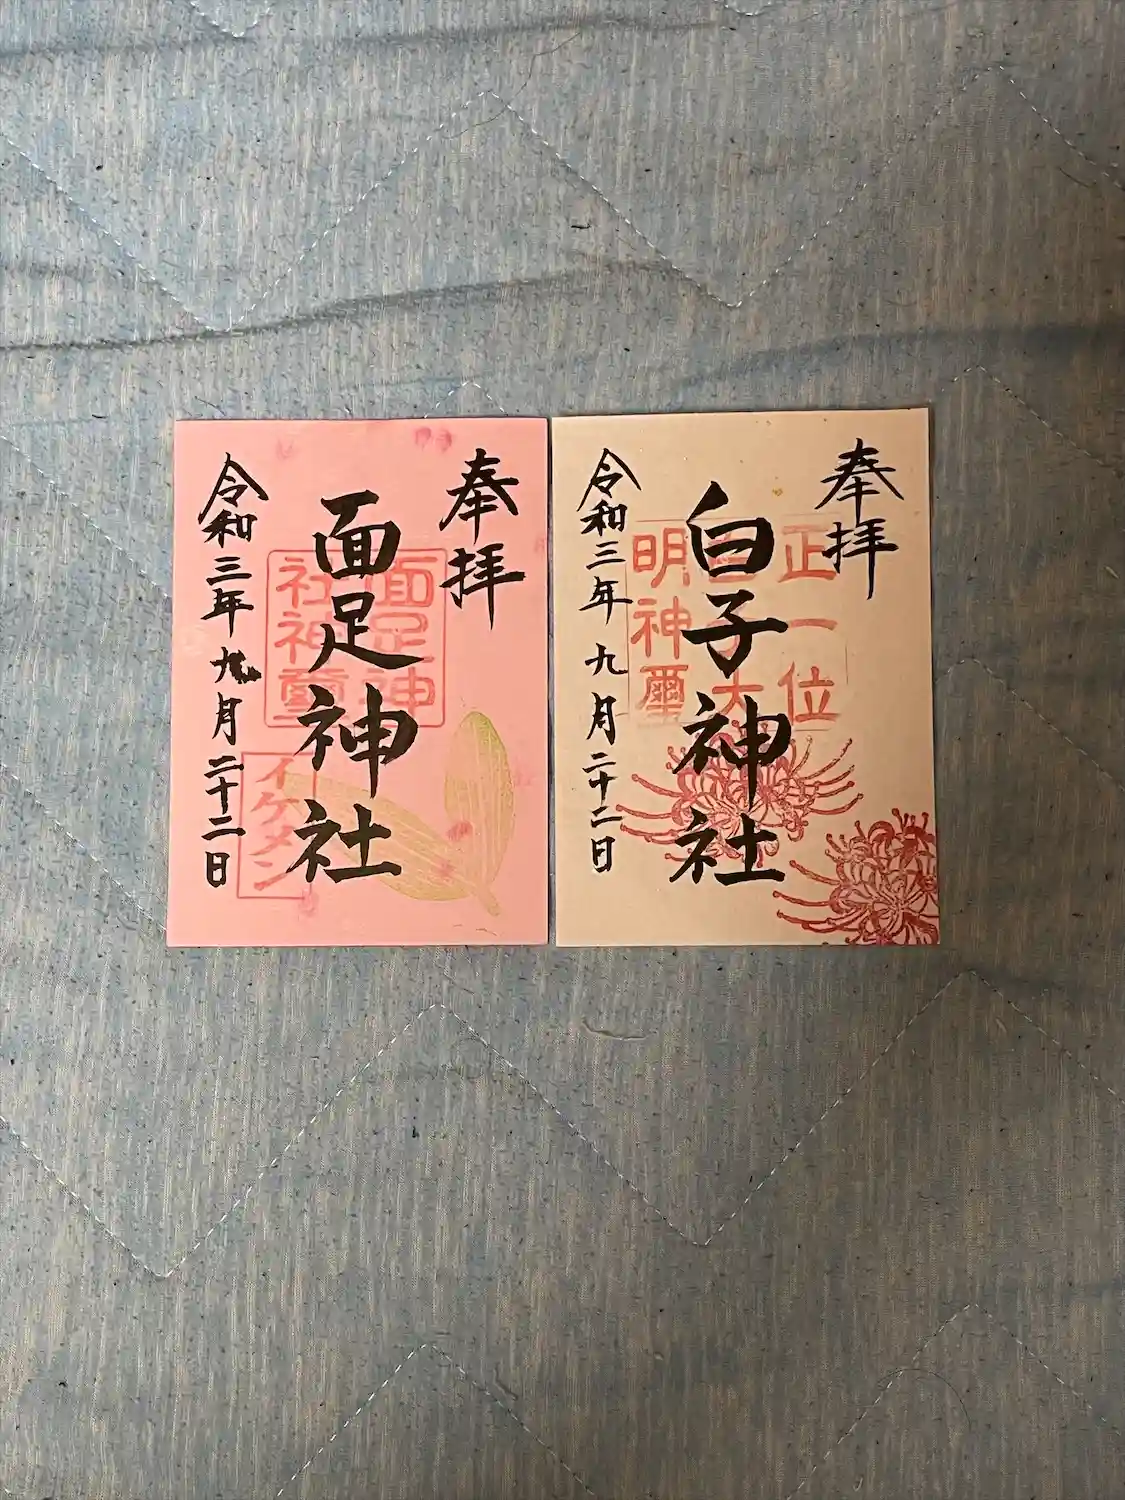 奉拝
面足神社
令和三年九月二十二日
面足神
社神璽
イケメン
奉拝
白子神社
令和三年九月二十二日
正一位
大
明神璽